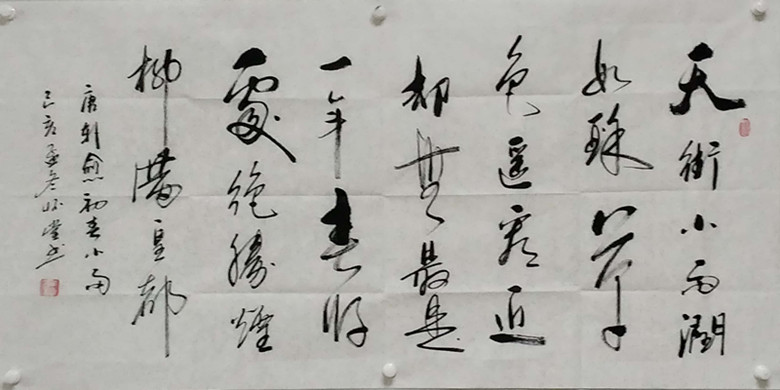 天街小雨潤
如酥草
色遥看近
却無最是
一年春好
處絶勝煙
柳滿皇都
唐韩愈初春小雨
己亥孟冬